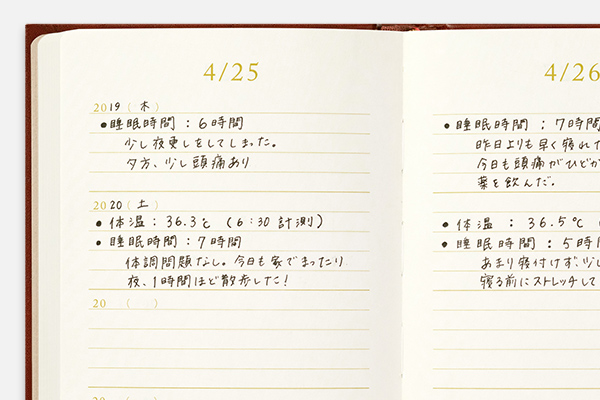 4/25
2019（木）
●睡眠時間：6時間
少し夜更しをしてしまった。
夕方、少し頭痛あり
2020（土）
●体温：36.3℃（6:30計測）
●睡眠時間：7時間
体調問題なし。今日も家でまったり
夜、1時間ほど散歩した！
20（　）
20（　）
4/26
●睡眠時間：7時間
昨日よりも早く寝れた
今日も頭痛がひどか
薬を飲んだ。
●体温：36.5℃（
●睡眠時間：5時
あまり寝付けず、少し
寝る前にストレッチして